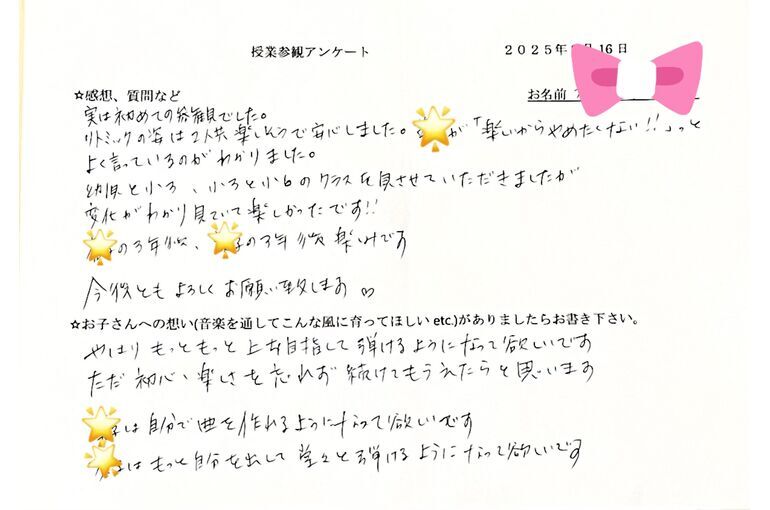 授業参観アンケート
2025年 月16日
お名前
☆感想、質問など
実は初めての参観でした。
リトミックの姿は2人共楽しそうで安心しました。 が「楽しいからやめたくない!!」っと
よく言っているのがわかりました。
幼児と小3、小3と小6のクラスを見させていただきましたが
変化がわかり見ていて楽しかったです!!
の3年後、 の3年後楽しみです
今後ともよろしくお願い致します♡
☆お子さんへの想い(音楽を通してこんな風に育ってほしい etc.)がありましたらお書き下さい。
やはりもっともっと上を目指して弾けるようになって欲しいです
ただ初心、楽しさを忘れず続けてもらえたらと思います
は自分で曲を作れるようになって欲しいです
はもっと自分を出して堂々と弾けるようになって欲しいです